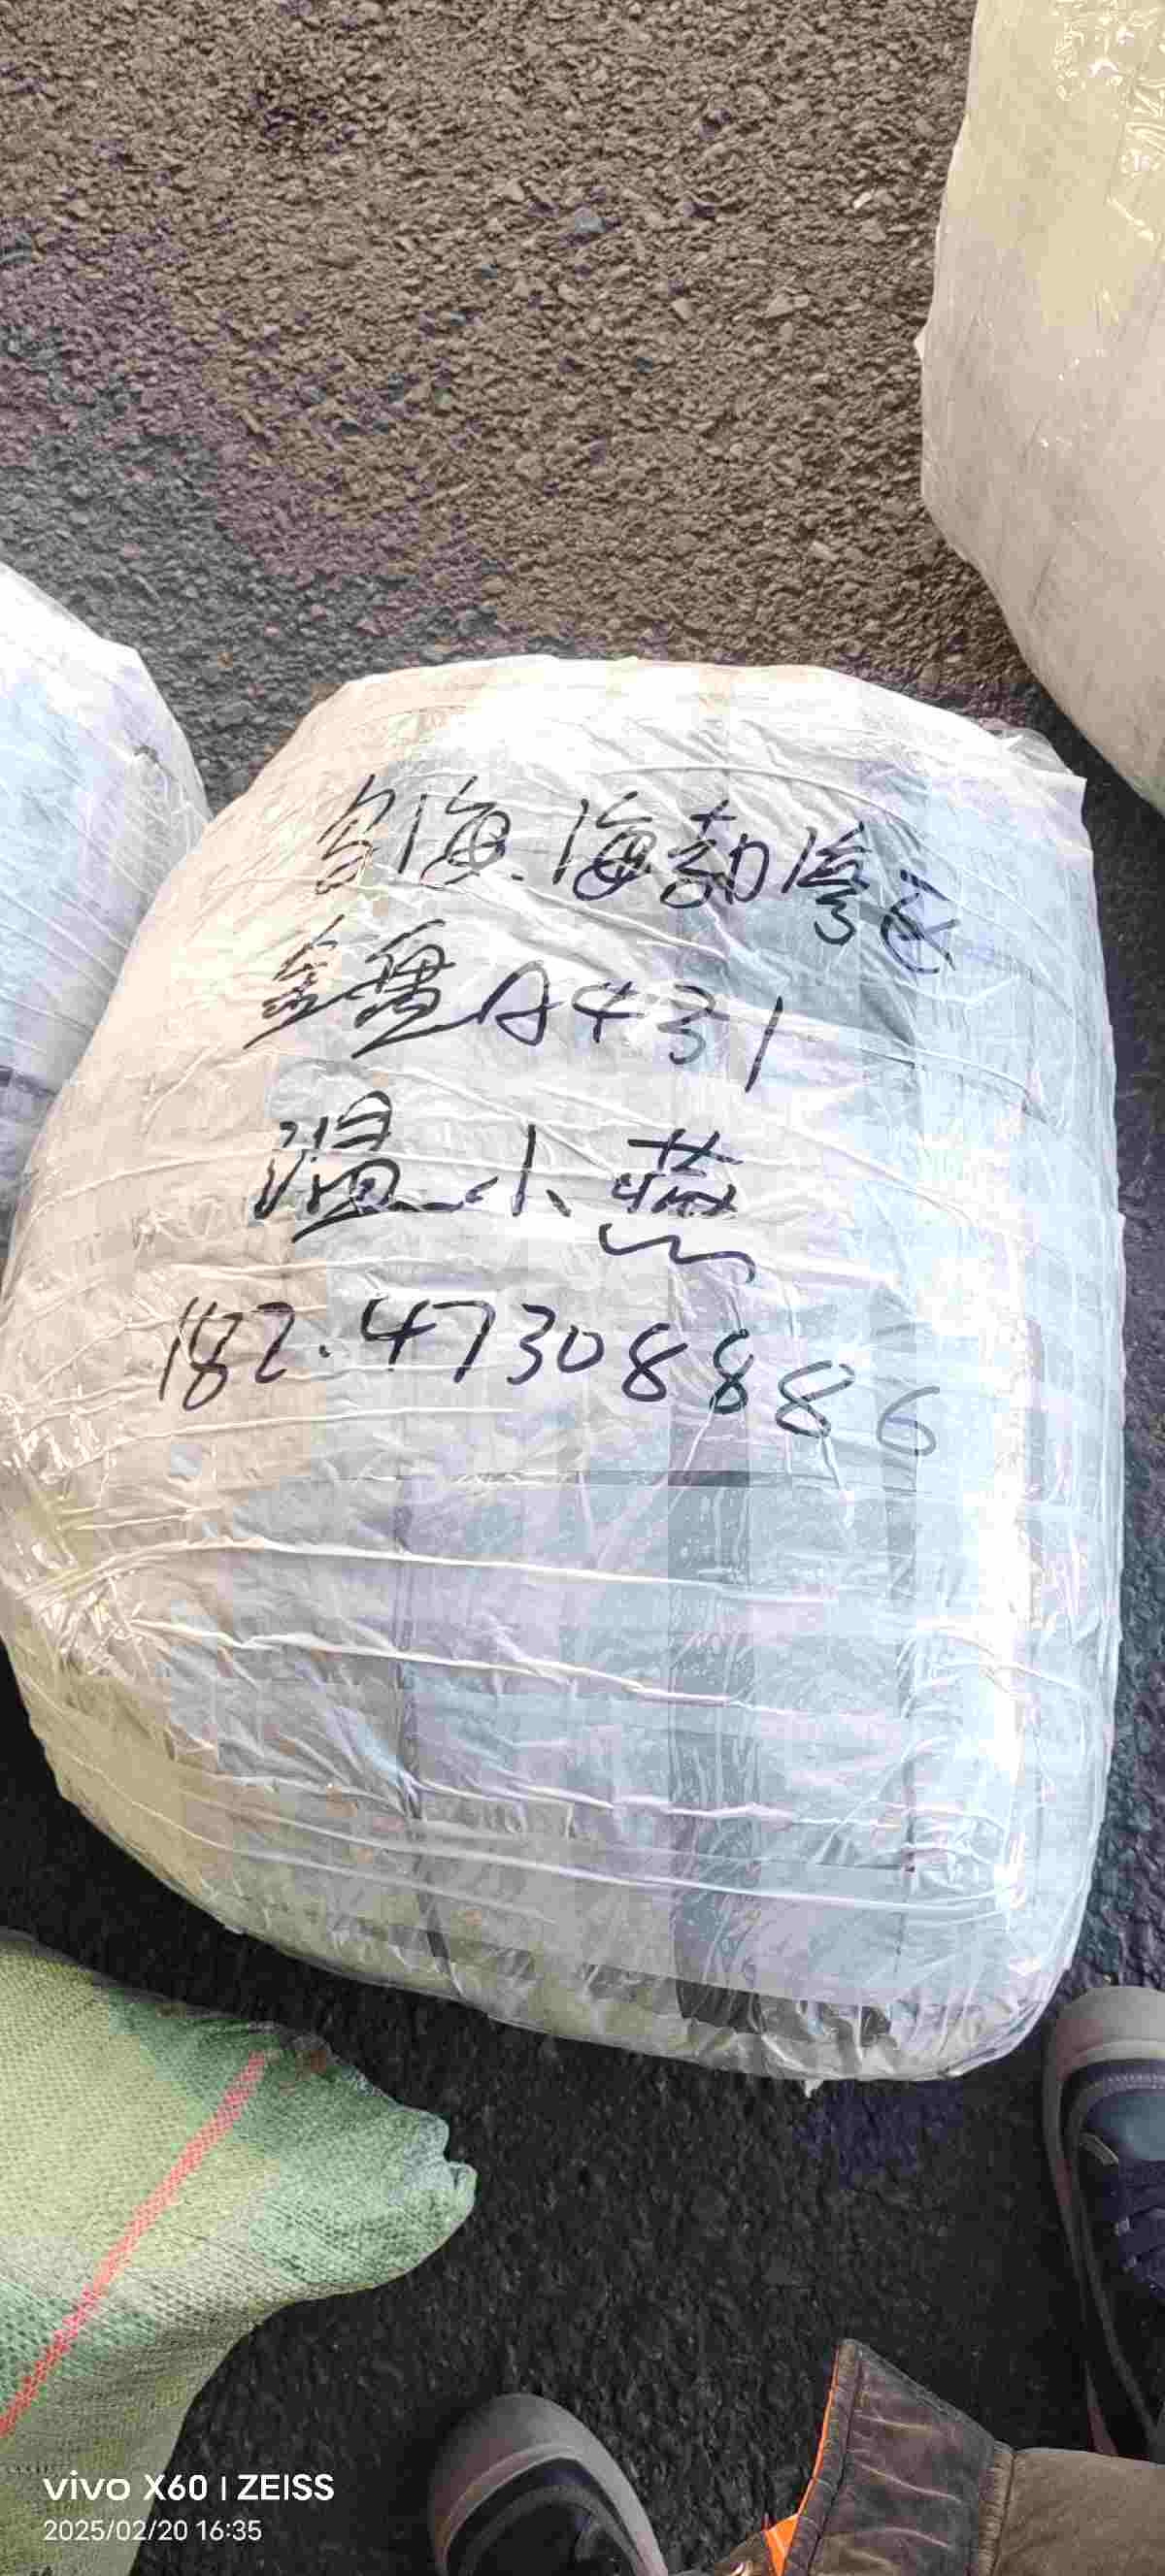 乌海.海勃湾区
鑫盛A431
温小燕
182.47308886
vivo X60 | ZEISS
2025/02/20 16:35